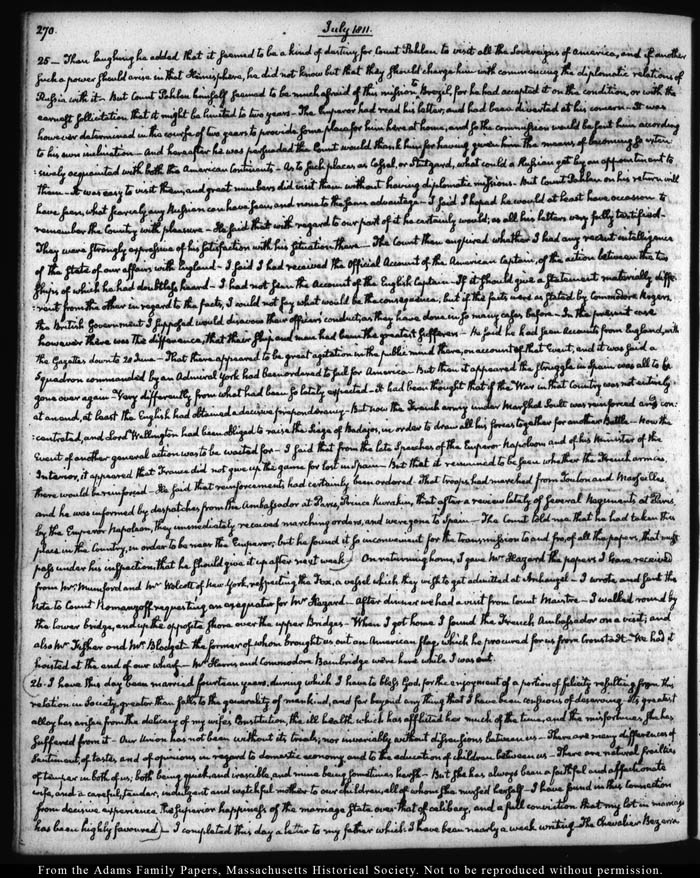 270.
July 1811.
25 — Then laughing he added that it seemed to be a kind of destiny for Count Pahlen to visit all the Sovereigns of America, and if another
such a power should arise in that Hemisphere, he did not know but that they should charge him with commencing the diplomatic relations of
Russia with it — But Count Pahlen himself seemed to be much afraid of this mission to Brazil, for he had accepted it on the condition, or with the
earnest sollicitation that it might be limited to two years — The Emperor had read his letter, and had been diverted at his concern — It was
however determined in the course of two years to provide some place for him here at home, and so the commission would be sent him according
to his own inclination — And hereafter he was persuaded the Count would thank him for having given him the means of becoming exten
:sively acquainted with both the American Continents — As to such places as Cassel, or Stutgard, what could a Russian get by an appointment to
them — It was easy to visit them, and great numbers did visit them without having diplomatic missions — But Count Pahlen on his return will
have seen, what scarcely any Russian can have seen, and none to the same advantage — I said I hoped he would at least have occasion to
remember the Country with pleasure — He said that with regard to our part of it he certainly would; as all his letters very fully testified —
They were strongly expressive of his satisfaction with his situation there — The Count then enquired whether I had any recent intelligence
of the State of our affairs with England — I said I had received the Official Account of the American Captain, of the action between the two
ships of which he had doubtless heard — I had not seen the Account of the English Captain — If it should give a Statement materially diffe
:rent from the other in regard to the facts, I could not say what would be the consequence; but if the facts were as stated by Commodore Rogers,
the British Government I supposed would disavow their officers conduct, as they have done in so many cases before — In the present case
however there was this difference, that their ship and men had been the greatest sufferers — He said he had seen Accounts from England, with
the Gazettes down to 20 June — That there appeared to be great agitation in the public mind there, on account of that Event, and it was said a
Squadron commanded by an Admiral York had been ordered to sail for America — But then it appeared the struggle in Spain was all to be
gone over again — Very differently from what had been so lately expected — It had been thought that if the War in that Country was not entirely
at an end, at least the English had obtained a decisive preponderancy — But now the French army under Marshal Soult was reinforced and con:
:centrated, and Lord Wellington had been obliged to raise the siege of Badajos, in order to draw all his forces together for another Battle — Now the
Event of another general action was to be waited for — I said that from the late Speeches of the Emperor Napoleon and of his Minister of the
Interior, it appeared that France did not give up the game for lost in Spain — But that it remained to be seen whether the French armies,
there would be reinforced — He said that reinforcements had certainly been ordered — That troops had marched from Toulon and Marseilles,
and he was informed by despatches from the Ambassador at Paris, Prince Kurakin, that after a review lately of several Regiments at Paris
by the Emperor Napoleon, they immediately received marching orders, and were gone to Spain — The Count told me that he had taken this
place in the Country, in order to be near the Emperor; but he found it so inconvenient for the transmission to and fro, of all the papers, that must
pass under his inspection, that he should give it up after next week — On returning home, I gave Mr Hazard the papers I have received
from Mr Mumford and Mr Wolcott of New York, respecting the Fox, a vessel which they wish to get admitted at Archangel — I wrote, and sent the
Note to Count Romanzoff requesting an exequatur for Mr Hazard — After dinner we had a visit from Count Maistre — I walked round by
the lower bridge, and up the opposite shore over the upper Bridges — When I got home I found the French Ambassador on a visit; and
also Mr Fisher and Mr Blodget. the former of whom brought us out an American flag, which he procured for us from Cronstadt — We had it
hoisted at the end of our wharf — Mr Harris and Commodore Bainbridge were here while I was out.
26. I have this day been married fourteen years, during which I have to bless God, for the enjoyment of a portion of felicity resulting from this
relation in Society, greater than falls to the generality of mankind, and far beyond any thing that I have been conscious of deserving. Its greatest
alloy has arisen from the delicacy of my wife's Constitution, the ill health which has afflicted her much of the time, and the misfortunes she has
suffered from it — Our Union has not been without its trials; nor invariably without dissensions between us — There are many differences of
Sentiment, of tastes, and of opinions in regard to domestic economy, and to the education of children between us — There are natural frailties
of temper in both of us; both being quick and irascible, and mine being sometimes harsh — But she has always been a faithful and affectionate
wife, and a careful, tender, indulgent and watchful mother to our children, all of whom she nursed herself — I have found in this connection
from decisive experience, the superior happiness of the marriage State over that of celibacy, and a full conviction that my lot in marriage
has been highly favoured) — I completed this day a letter to my father which I have been nearly a week writing. The Chevalier Bezerra
From the Adams Family Papers, Massachusetts Historical Society. Not to be reproduced without permission.